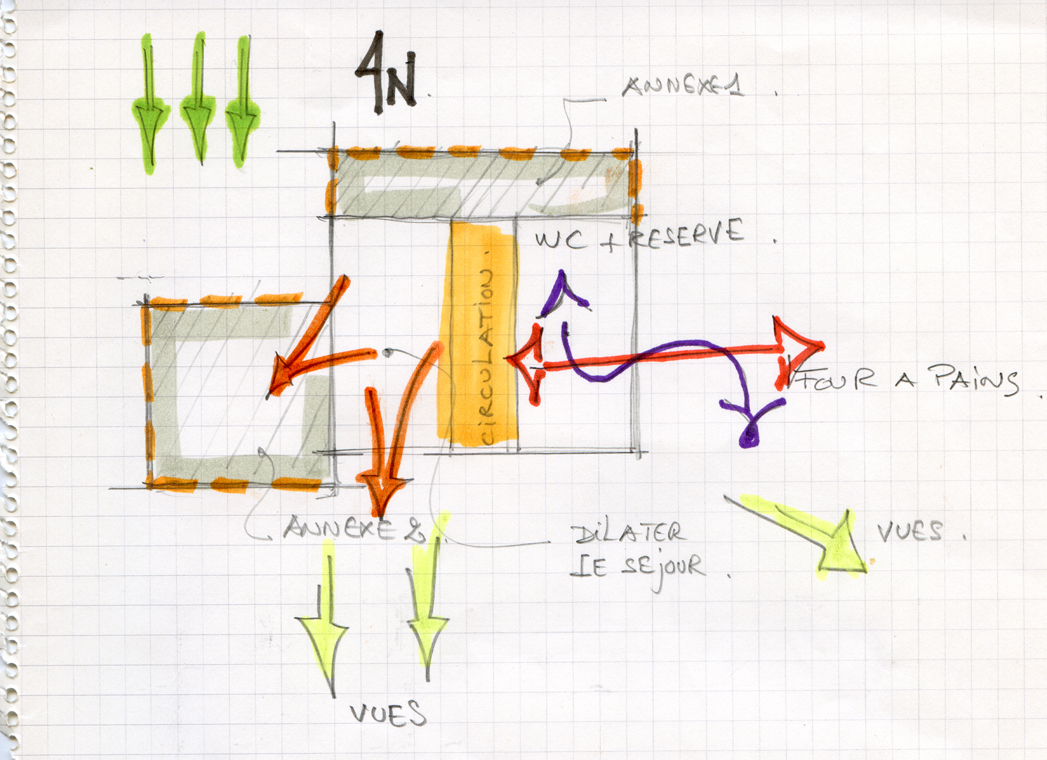 N.
ANNEXE 1.
WC + RESERVE.
CIRCULATION.
FOUR A PAINS.
ANNEXE 2.
DILATER
LE SEJOUR.
VUES.
VUES